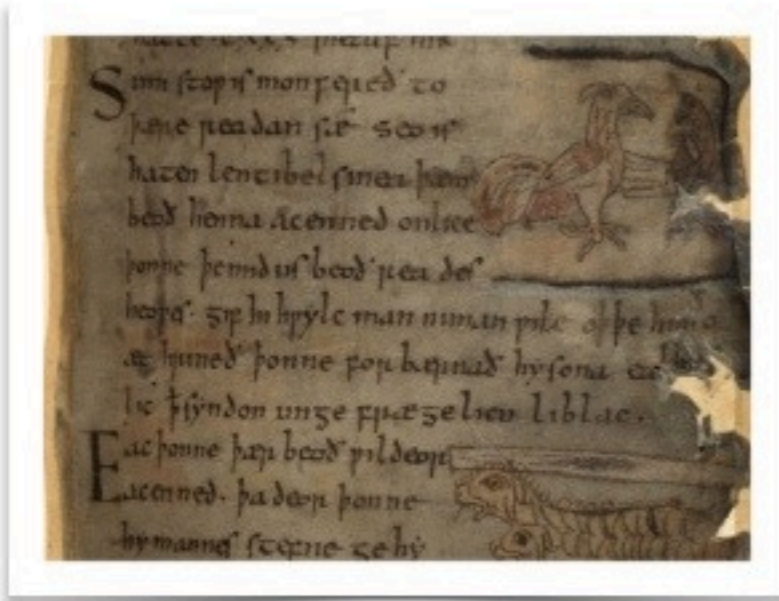 Sum stoƿ is mon færeð to
þære readan sæ seo is
haten lentibelsinea þæm
beoð henna acenned onlice
þonne þe mid us beoð rea des
heoƿes· gif hi hƿylc man niman ƿile oþþe hira
æt hrineð þonne for bærnað hy sona
lic ꝥ syndon unge fræge licu liblac·
Eac þonne þær beoð ƿildeor
acenned· þa deor þonne
hy mannes stefne gehy